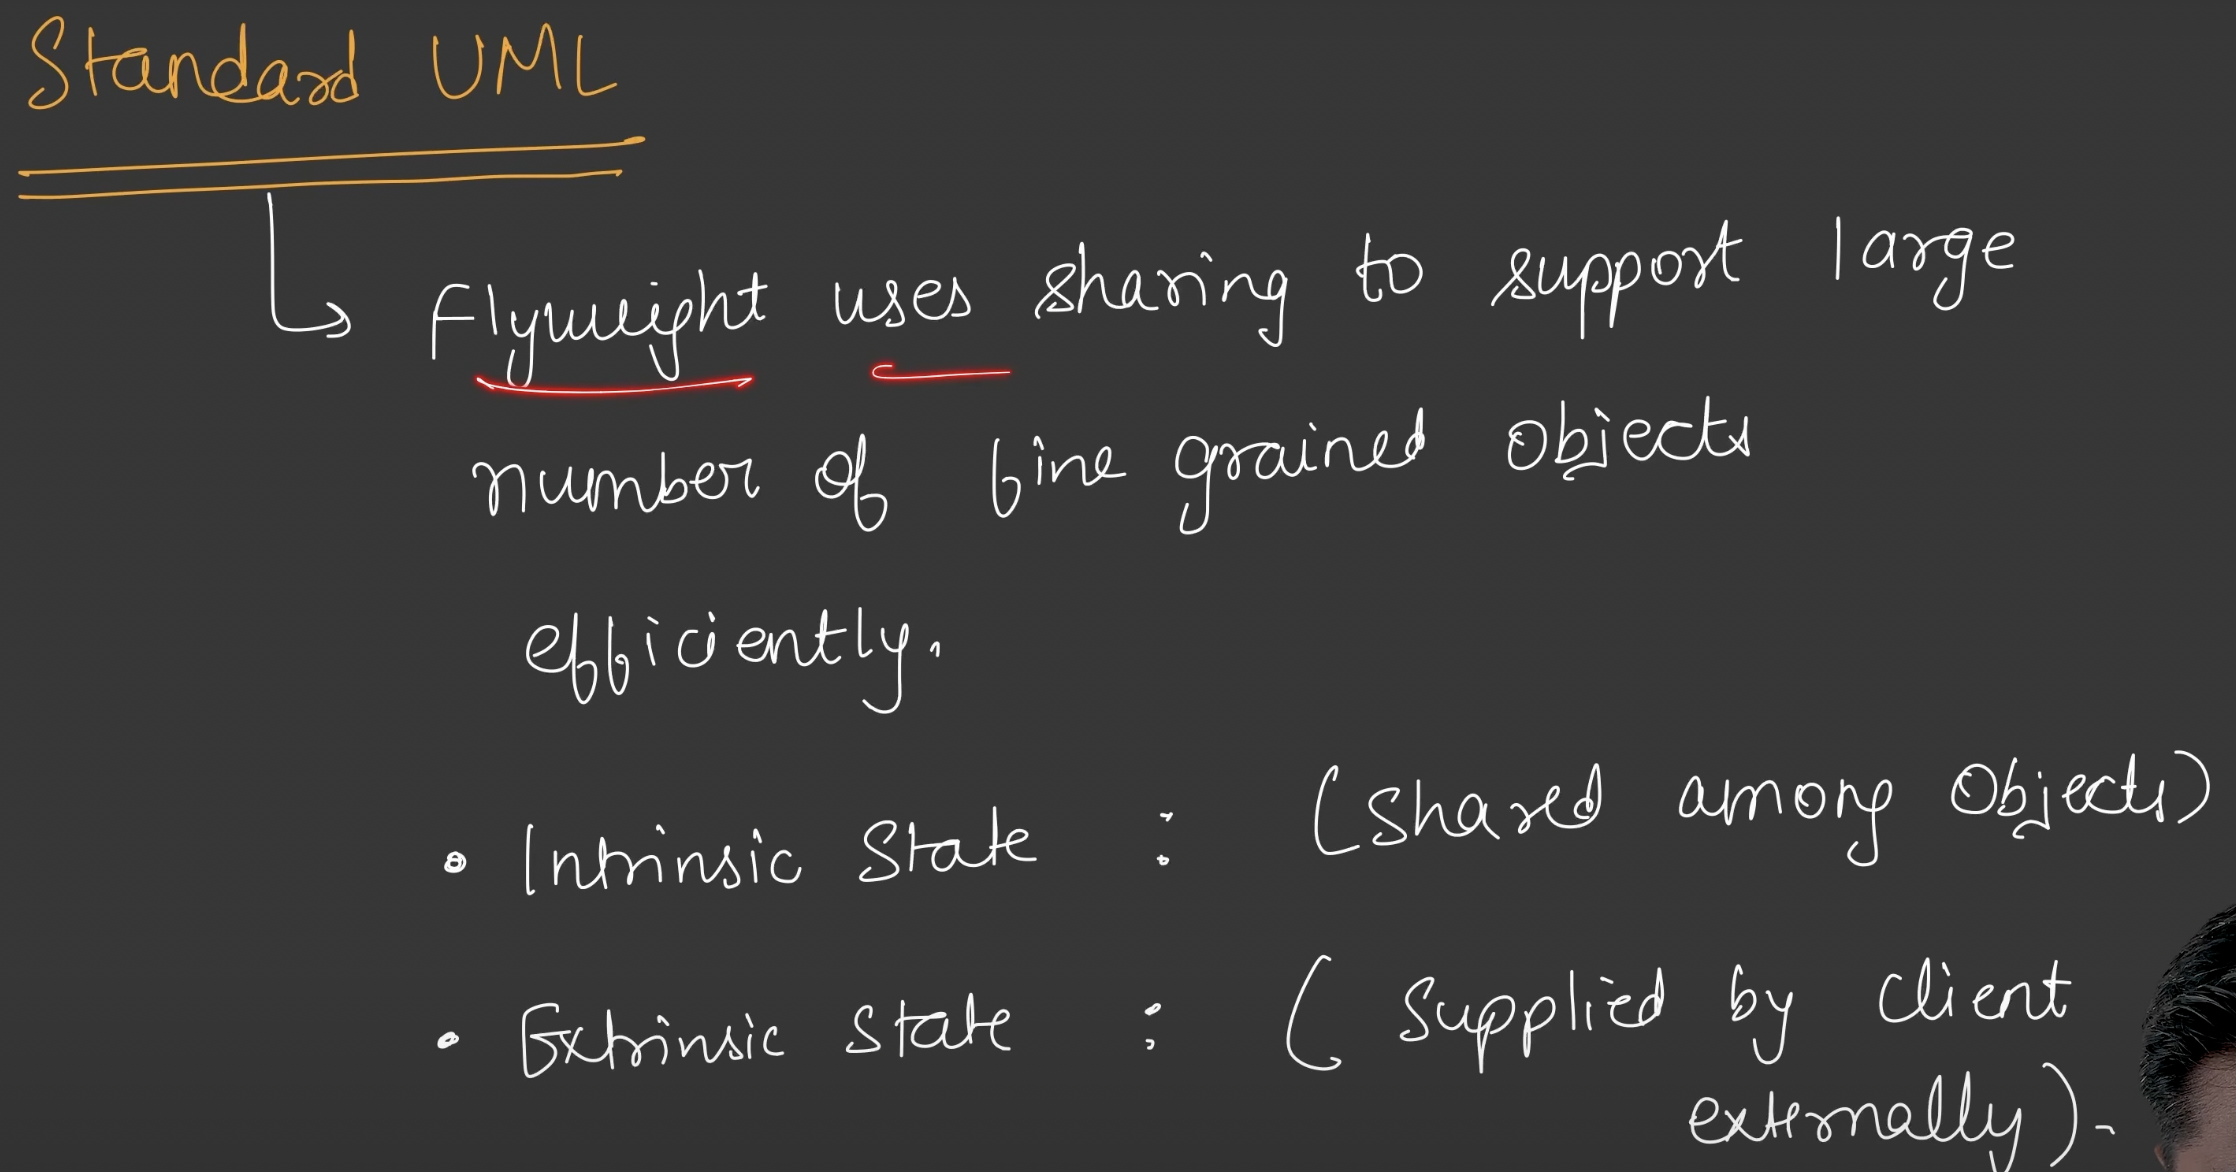 Standard UML
Flyweight uses sharing to support large
number of fine grained objects
efficiently.
• Intrinsic State : (shared among Objects)
• Extrinsic state : (Supplied by client
externally).